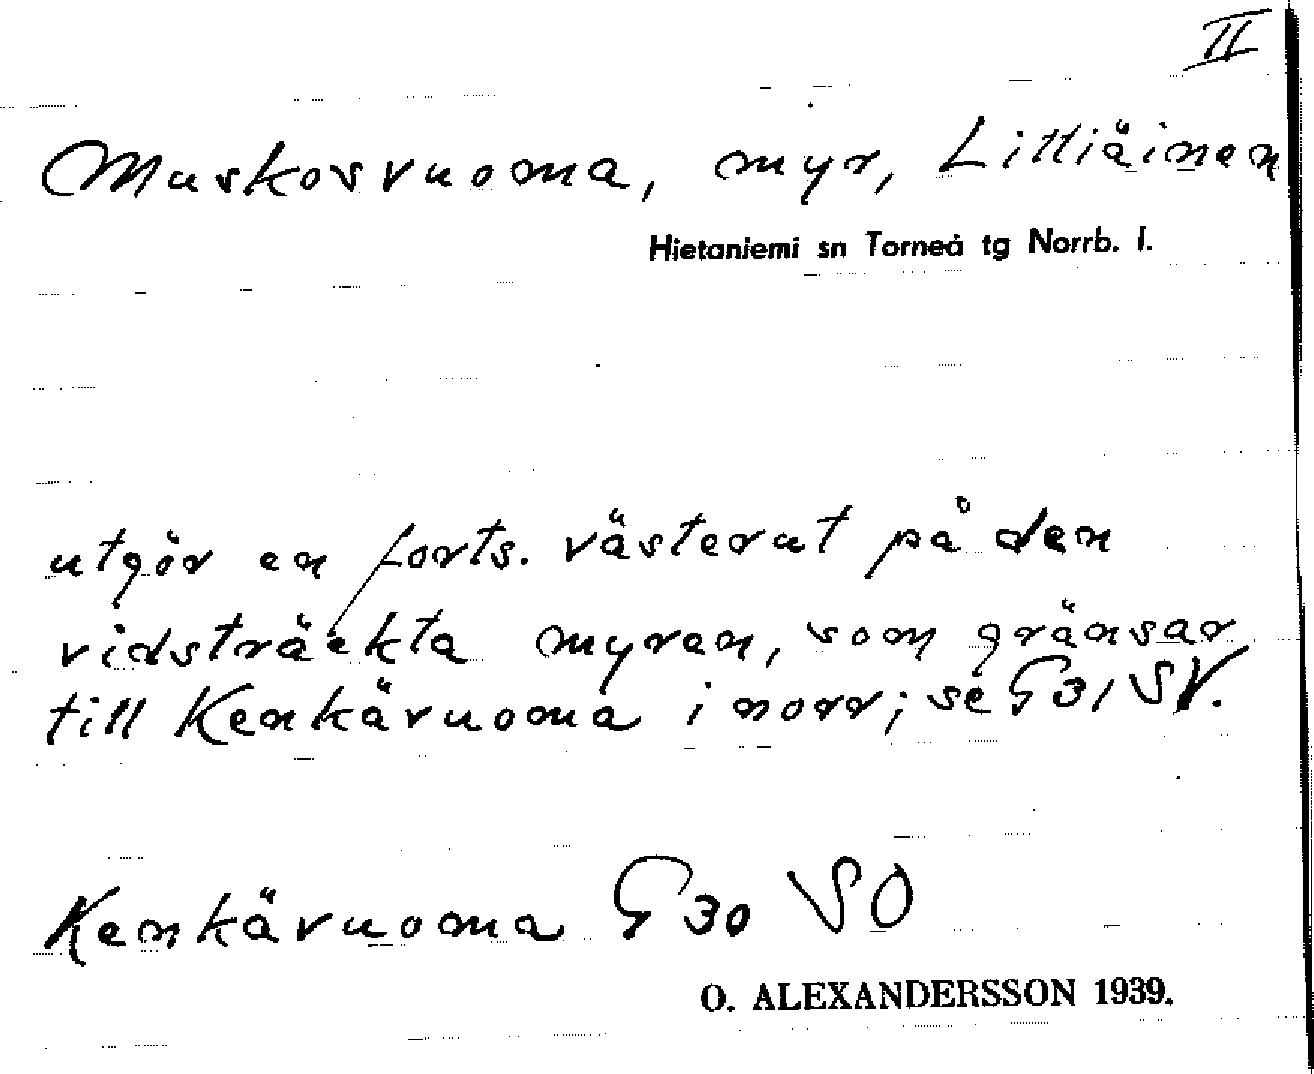 II
Muskosvuoma, myr, Littiäinen
Hietaniemi sn Torneå tg Norrb. l.
utgör en forts. västerut på den
vidsträckta myren, som gränsar
till Kenkävuoma i norr; se G 31 SV.
Kenkävuoma G 30 SO
O. ALEXANDERSSON 1939.